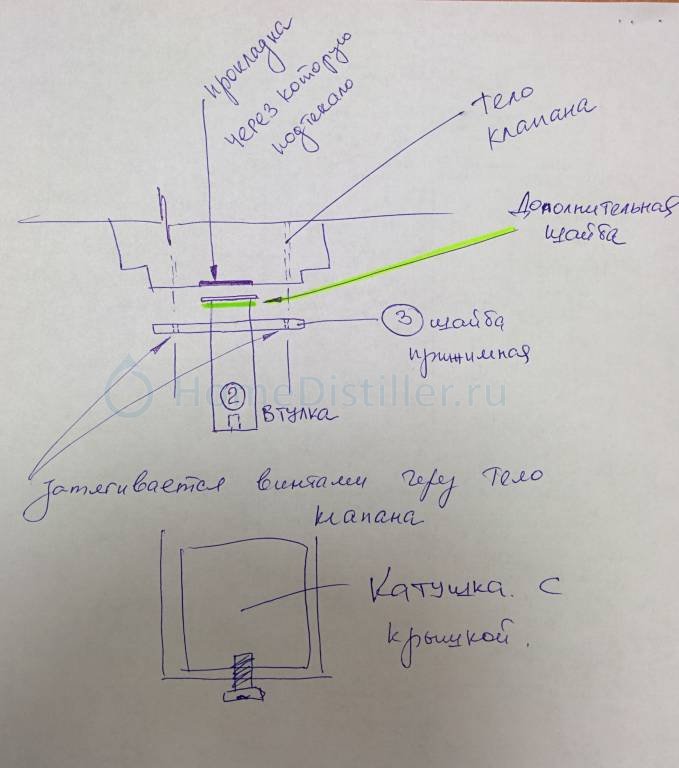 прокладка
через которую
подтекало
Тело
клапана
Дополнительная
шайба
3 шайба
прижимная
HomeDistiller.ru
2
Втулка
Затягивается винтами через тело
клапана
Катушка с
крышкой.